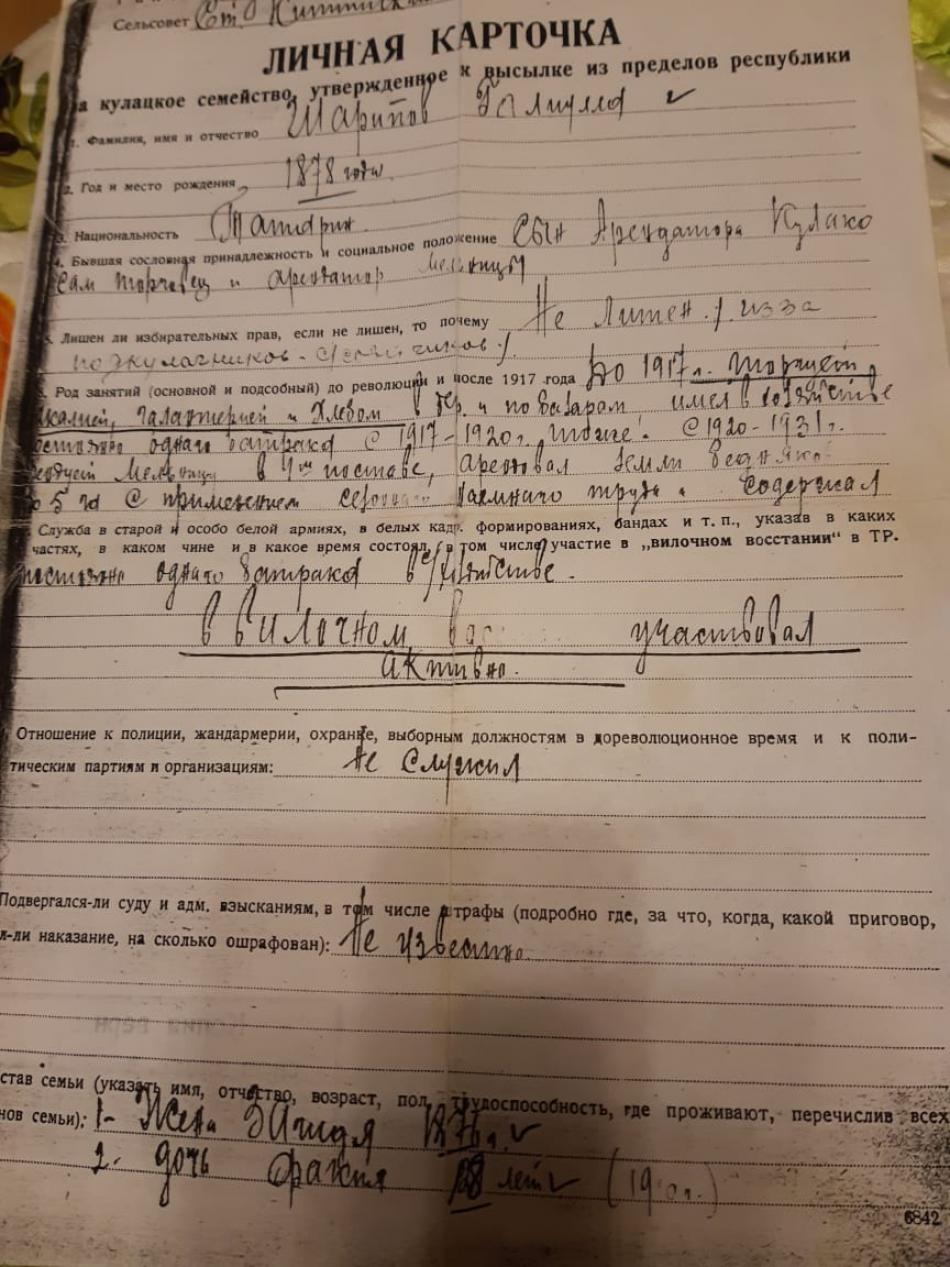 Сельсовет Ст.
ЛИЧНАЯ КАРТОЧКА
а кулацкое семейство, утвержденное к высылке из пределов республики
1. Фамилия, имя и отчество Шарипов Галиулла ✓
2. Год и место рождения, 1878 года.
3. Национальность Татарин
4. Бывшая сословная принадлежность и социальное положение Сын Арендатора Кулако
Сам торговец и арендатор мельницы
5. Лишен ли избирательных прав, если не лишен, то почему Не Лишен /изза
подкулачников
6. Род занятий (основной и подсобный) до революции и после 1917 года До 1917 г. торгует,
галантерией и Хлебом в дер. и по базарам имел в хозяйстве
одного батрака С 1917-1920 г. С 1920-1931 г.
Мельницу в поставе, арендовал земли бедняков
до 5 га С применением сезонного наемного труда и содержал
Служба в старой и особо белой армиях, в белых кадр. формированиях, бандах и т. п., указав в каких
частях, в каком чине и в какое время состоял, (в том числе участие в „вилочном восстании“ в ТР.
одного батрака в хозяйстве.
В вилочном участвовал
активно.
Отношение к полиции, жандармерии, охранке, выборным должностям в дореволюционное время и к поли-
тическим партиям и организациям: Не Служил
Подвергался-ли суду и адм. взысканиям, в том числе штрафы (подробно где, за что, когда, какой приговор,
л-ли наказание, на сколько ошрафован): Не известно.
став семьи (указать имя, отчество, возраст, пол, трудоспособность, где проживают, перечислив всех
нов семьи): 1- Жена ✓
2. дочь 18 лет ✓
6842